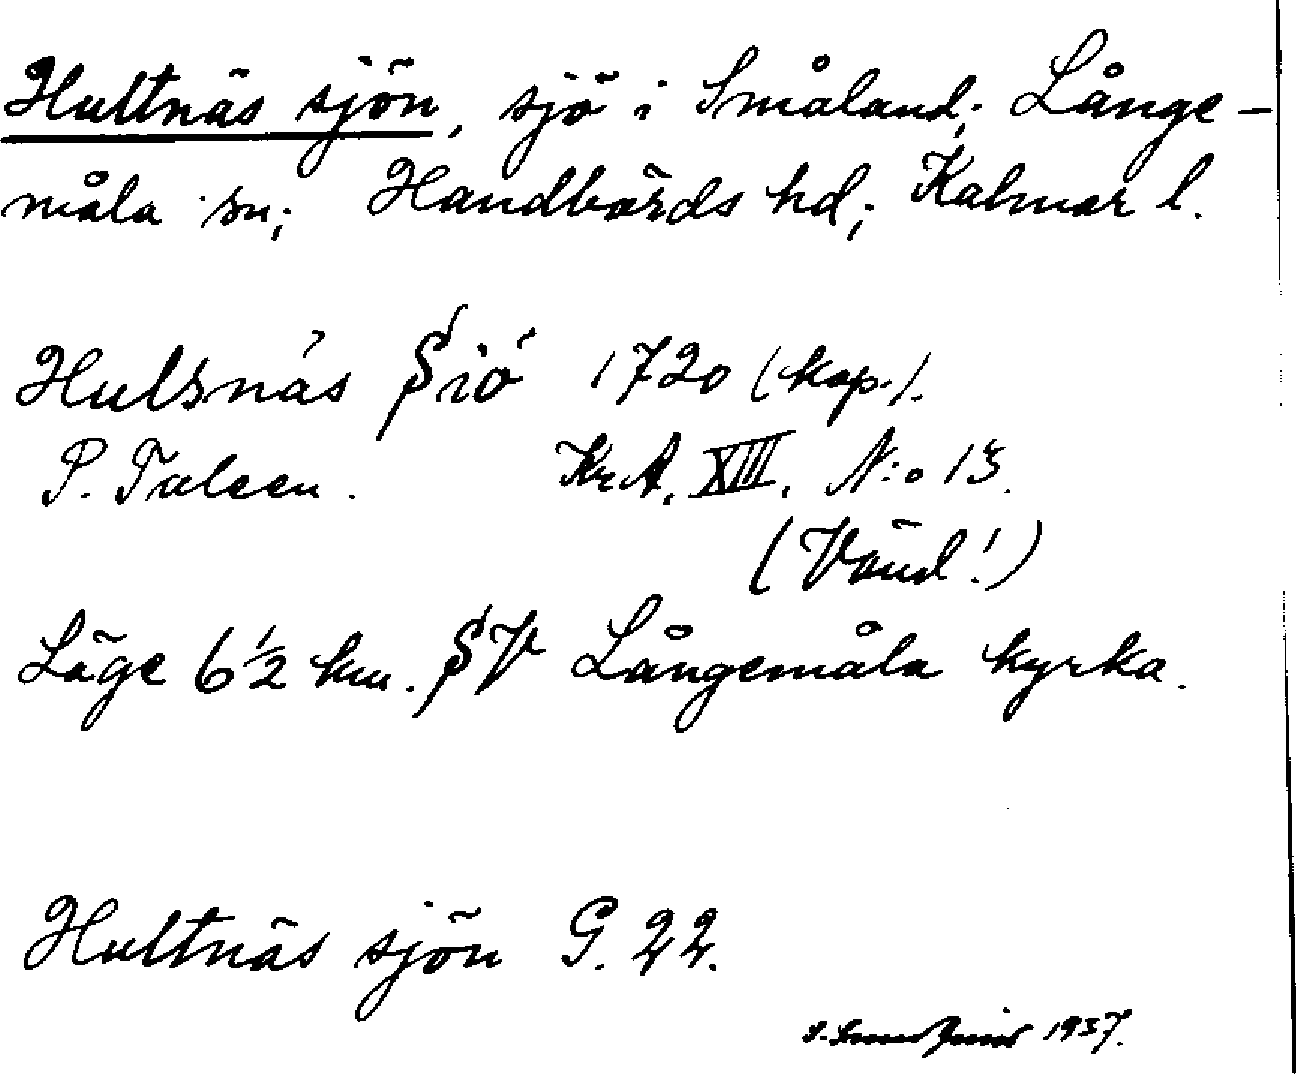 Hultnäs sjön, sjö i Småland; Långe-
måla sn; Handbörds hd; Kalmar l.
Hulsnäs Siö 1720 (kop.).
P. Taleen. Kr.A. XIII. N:o 13.
(Vänd!)
Läge 6 1/2 km. SV Långemåla kyrka.
Hultnäs sjön G. 22.
1937.